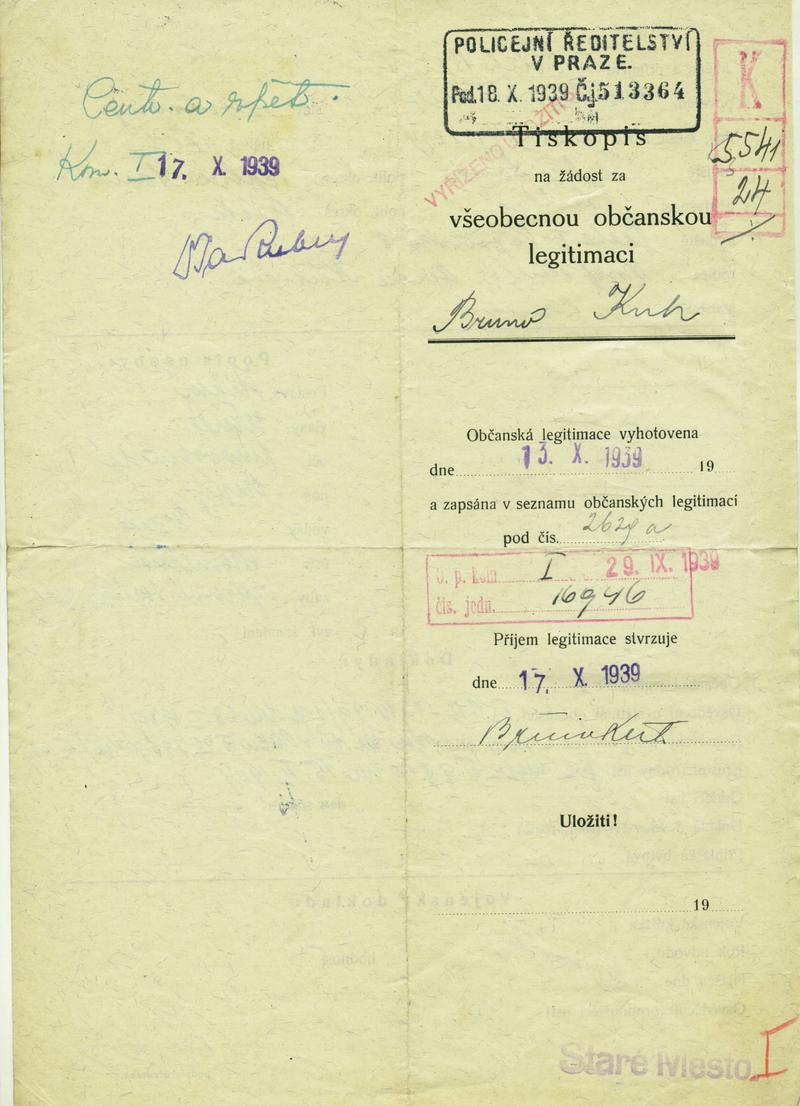 Centr. a zpět.
Kom. I 17. X. 1939
POLICEJNÍ ŘEDITELSTVÍ
V PRAZE.
Pod. 18. X. 1939 Čj. 513364
K
5541
24
I
VYŘÍZENO
Tiskopis
na žádost za
všeobecnou občanskou
legitimaci
Bruno Kuh
Občanská legitimace vyhotovena
dne 13. X. 1939 19
a zapsána v seznamu občanských legitimací
pod čís. 2629 a
o. p. kom I 29. IX. 1939
čís. jedn. 16946
Příjem legitimace stvrzuje
dne 17. X. 1939
Bruno Kuh
Uložiti!
19
Staré Město I